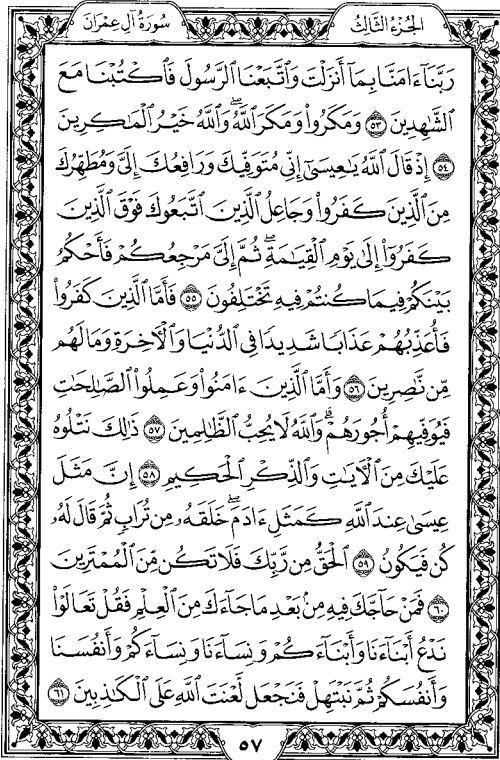 سُورَةُ آلِ عِمْرَان
الجُزْءُ الثَّالِثُ
رَبَّنَآ ءَامَنَّا بِمَآ أَنزَلْتَ وَٱتَّبَعْنَا ٱلرَّسُولَ فَٱكْتُبْنَا مَعَ
ٱلشَّٰهِدِينَ ٥٣ وَمَكَرُوا۟ وَمَكَرَ ٱللَّهُ ۖ وَٱللَّهُ خَيْرُ ٱلْمَٰكِرِينَ
٥٤ إِذْ قَالَ ٱللَّهُ يَٰعِيسَىٰٓ إِنِّى مُتَوَفِّيكَ وَرَافِعُكَ إِلَىَّ وَمُطَهِّرُكَ
مِنَ ٱلَّذِينَ كَفَرُوا۟ وَجَاعِلُ ٱلَّذِينَ ٱتَّبَعُوكَ فَوْقَ ٱلَّذِينَ
كَفَرُوٓا۟ إِلَىٰ يَوْمِ ٱلْقِيَٰمَةِ ۖ ثُمَّ إِلَىَّ مَرْجِعُكُمْ فَأَحْكُمُ
بَيْنَكُمْ فِيمَا كُنتُمْ فِيهِ تَخْتَلِفُونَ ٥٥ فَأَمَّا ٱلَّذِينَ كَفَرُوا۟
فَأُعَذِّبُهُمْ عَذَابًا شَدِيدًا فِى ٱلدُّنْيَا وَٱلْءَاخِرَةِ وَمَا لَهُم
مِّن نَّٰصِرِينَ ٥٦ وَأَمَّا ٱلَّذِينَ ءَامَنُوا۟ وَعَمِلُوا۟ ٱلصَّٰلِحَٰتِ
فَيُوَفِّيهِمْ أُجُورَهُمْ ۗ وَٱللَّهُ لَا يُحِبُّ ٱلظَّٰلِمِينَ ٥٧ ذَٰلِكَ نَتْلُوهُ
عَلَيْكَ مِنَ ٱلْءَايَٰتِ وَٱلذِّكْرِ ٱلْحَكِيمِ ٥٨ إِنَّ مَثَلَ
عِيسَىٰ عِندَ ٱللَّهِ كَمَثَلِ ءَادَمَ ۖ خَلَقَهُۥ مِن تُرَابٍ ثُمَّ قَالَ لَهُۥ
كُن فَيَكُونُ ٥٩ ٱلْحَقُّ مِن رَّبِّكَ فَلَا تَكُن مِّنَ ٱلْمُمْتَرِينَ
٦٠ فَمَنْ حَآجَّكَ فِيهِ مِنۢ بَعْدِ مَا جَآءَكَ مِنَ ٱلْعِلْمِ فَقُلْ تَعَالَوْا۟
نَدْعُ أَبْنَآءَنَا وَأَبْنَآءَكُمْ وَنِسَآءَنَا وَنِسَآءَكُمْ وَأَنفُسَنَا
وَأَنفُسَكُمْ ثُمَّ نَبْتَهِلْ فَنَجْعَل لَّعْنَتَ ٱللَّهِ عَلَى ٱلْكَٰذِبِينَ ٦١
٥٧